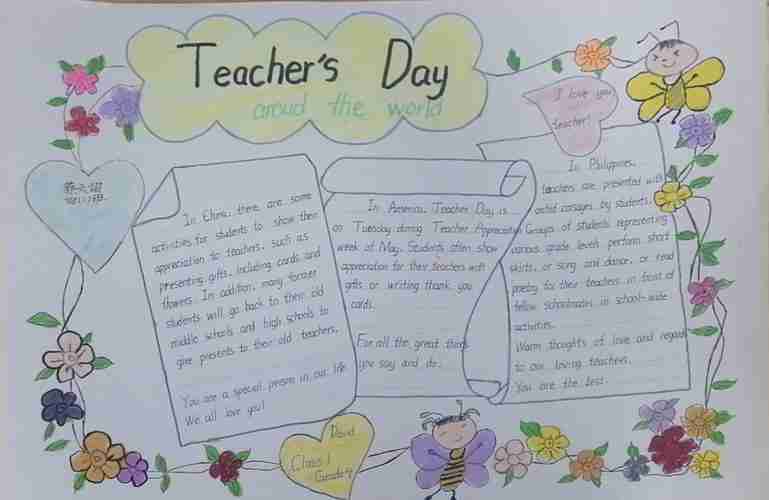 Teacher's Day
aroud the world
I love you
teacher!
In China, there are some
activities for students to show their
appreciation to teachers, such as
presenting gifts, including cards and
flowers. In addition, many former
students will go back to their old
middle schools and high schools to
give presents to their old teachers.
You are a special preson in our life
We all love you!
In America, Teacher Day is
on Tuesday during Teacher Appreciation
week of May. Students often show
appreciation for their teachers with
gifts or writing thank you
cards.
For all the great thing
you say and do.
In Philippines,
teachers are presented with
orchid corsages by students.
Groups of students representing
various grade levels perform short
skirts, or song and dance, or read
poetry for their teachers in front of
fellow schoolmates in school-wide
activities.
Warm thoughts of love and regard
to our loving teachers.
You are the best.
David
Class 1
Grade 4